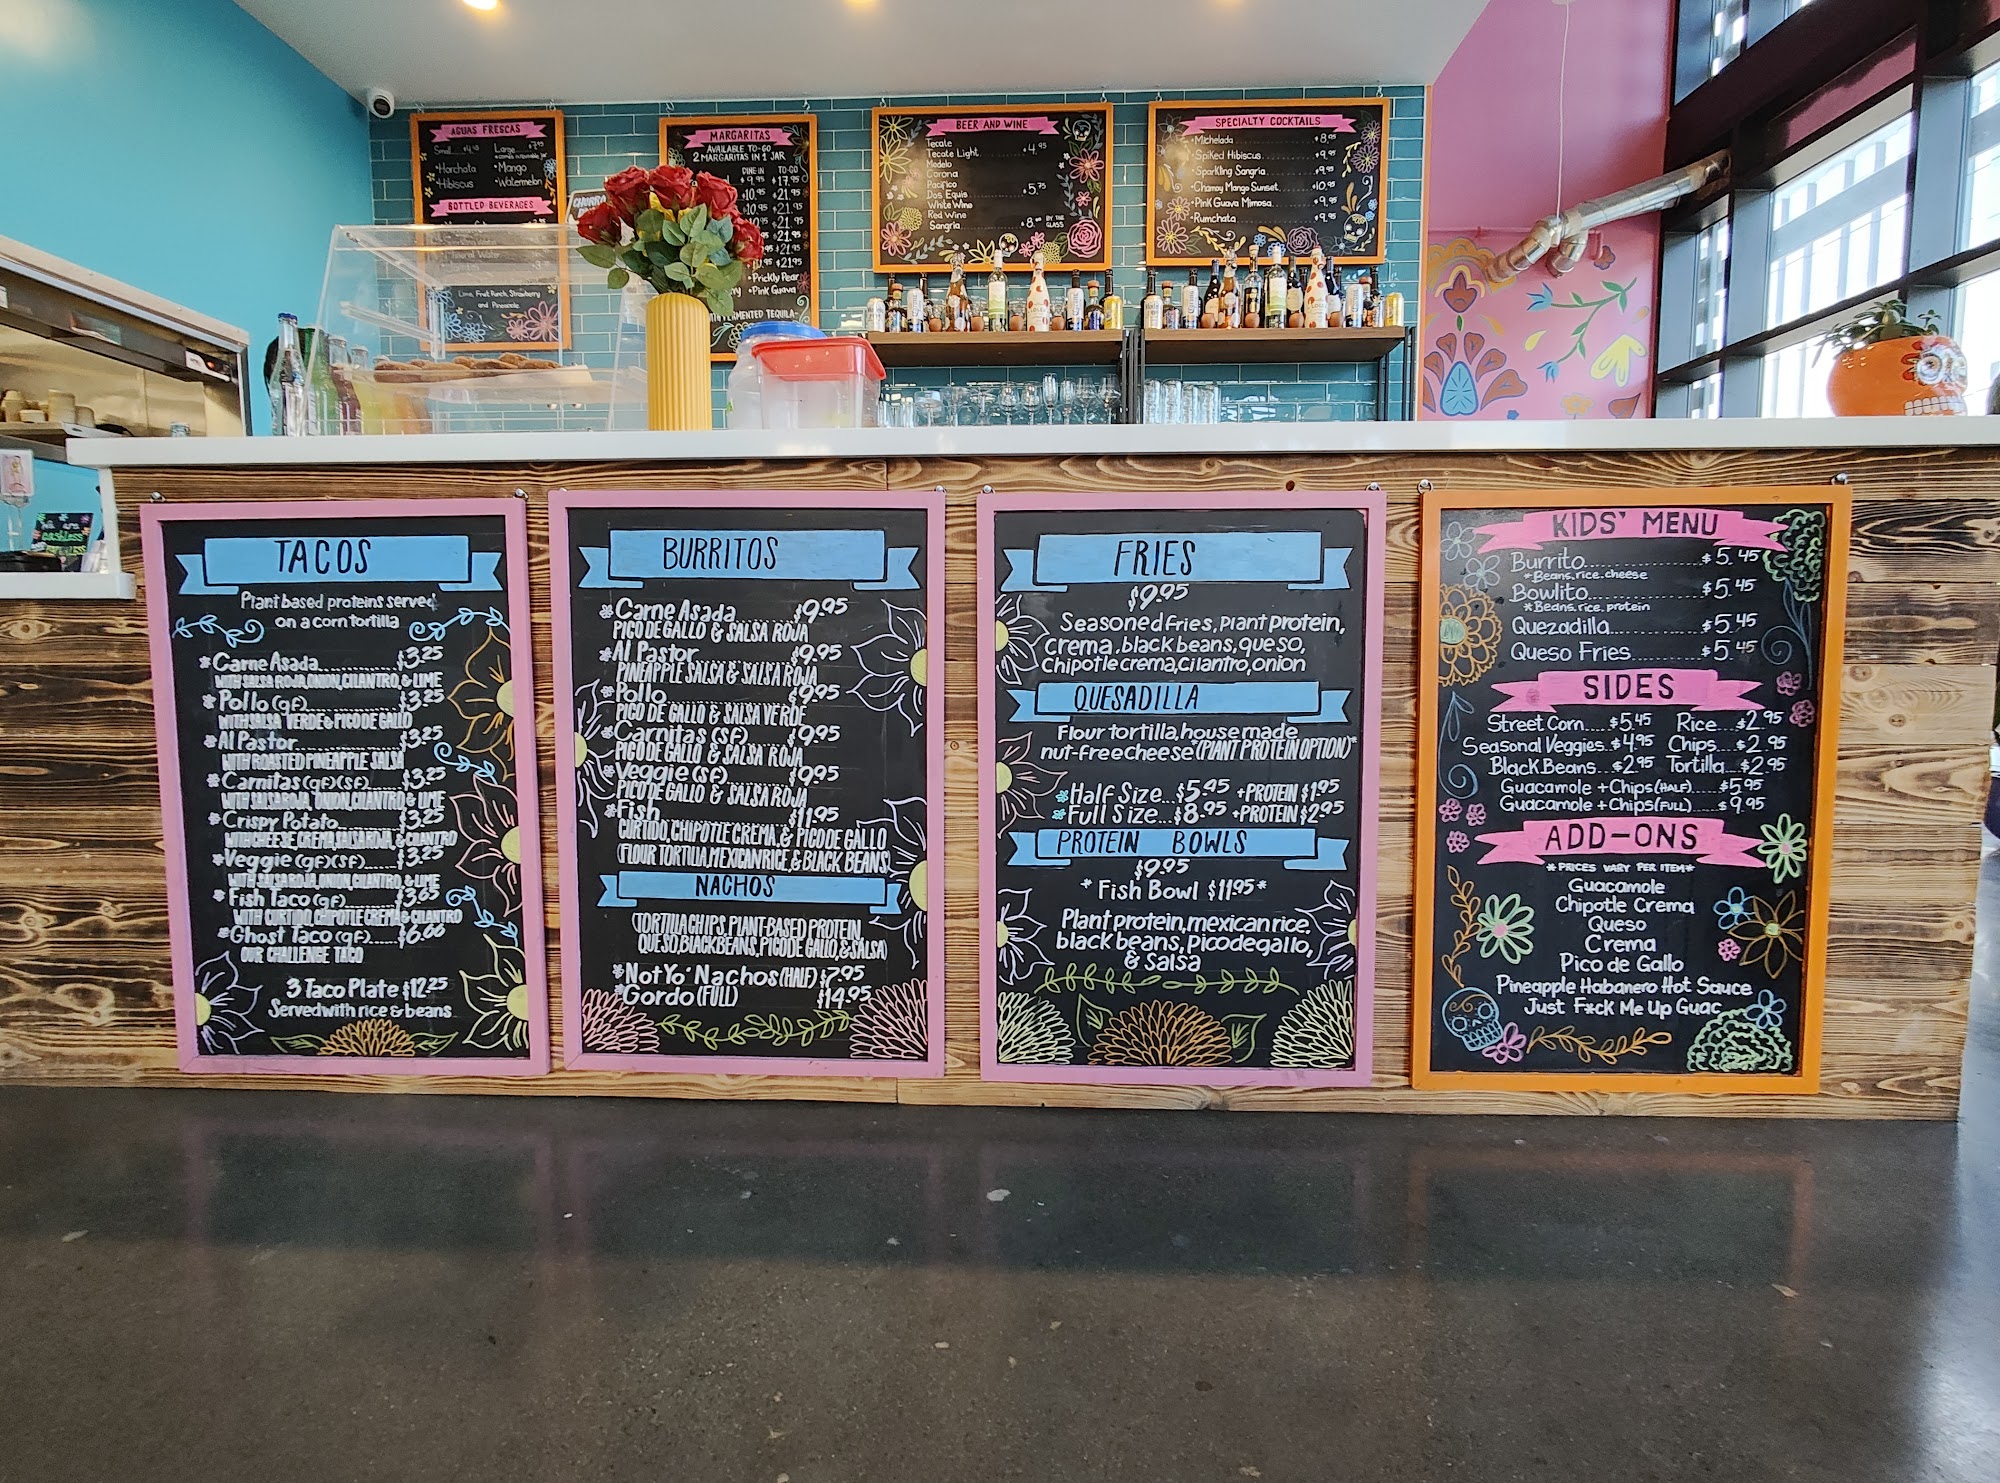 AGUAS FRESCAS
Small $4.45 Large $7.95
Horchata
Mango
Hibiscus
Watermelon
BOTTLED BEVERAGES
Mineral Water
Lime, Fruit Punch, Strawberry
and Pineapple
CHURRO
MARGARITAS
AVAILABLE TO-GO
2 MARGARITAS IN 1 JAR
DINE IN TO-GO
$9.95 $17.95
$10.95 $21.95
$10.95 $21.95
$21.95
$21.95
$21.95
Prickly Pear
Pink Guava
FERMENTED TEQUILA-
BEER AND WINE
Tecate
Tecate Light $4.95
Modelo
Corona
Pacifico
Dos Equis $5.75
White Wine
Red Wine
Sangria $8 BY THE GLASS
SPECIALTY COCKTAILS
*Michelada $8.95
*Spiked Hibiscus $9.95
*Sparkling Sangria $9.95
*Chamoy Mango Sunset $10.95
*Pink Guava Mimosa $9.95
*Rumchata $9.95
We are
cashless
TACOS
Plant based proteins served
on a corn tortilla
*Carne Asada............$3.25
WITH SALSA ROJA, ONION, CILANTRO, & LIME
*Pollo (gf)............$3.25
WITH SALSA VERDE & PICO DE GALLO
*Al Pastor............$3.25
WITH ROASTED PINEAPPLE SALSA
*Carnitas (gf)(sf)......$3.25
WITH SALSA ROJA, ONION, CILANTRO & LIME
*Crispy Potato.........$3.25
WITH CHEESE, CREMA, SALSA ROJA, & CILANTRO
*Veggie (gf)(sf)......$3.25
WITH SALSA ROJA, ONION, CILANTRO, & LIME
*Fish Taco (gf)......$3.65
WITH CURTIDO, CHIPOTLE CREMA & CILANTRO
*Ghost Taco (gf).....$6.66
OUR CHALLENGE TACO
3 Taco Plate $12.25
Served with rice & beans
BURRITOS
*Carne Asada $9.95
PICO DE GALLO & SALSA ROJA
*Al Pastor $9.95
PINEAPPLE SALSA & SALSA ROJA
*Pollo $9.95
PICO DE GALLO & SALSA VERDE
*Carnitas (SF) $9.95
PICO DE GALLO & SALSA ROJA
*Veggie (SF) $9.95
PICO DE GALLO & SALSA ROJA
*Fish $11.95
CURTIDO, CHIPOTLE CREMA, & PICO DE GALLO
(FLOUR TORTILLA, MEXICAN RICE, & BLACK BEANS)
NACHOS
(TORTILLA CHIPS, PLANT-BASED PROTEIN,
QUESO, BLACK BEANS, PICO DE GALLO, & SALSA)
*Not Yo' Nachos (HALF) $7.95
*Gordo (FULL) $14.95
FRIES
$9.95
Seasoned fries, Plant protein,
crema, black beans, queso,
Chipotle crema, cilantro, onion
QUESADILLA
Flour tortilla, house made
nut-free cheese *(PLANT PROTEIN OPTION)*
*Half Size...$5.45 + PROTEIN $1.95
*Full Size...$8.95 + PROTEIN $2.95
PROTEIN BOWLS
$9.95
*Fish Bowl $11.95*
Plant protein, mexican rice,
black beans, Pico de gallo,
& Salsa
KIDS' MENU
Burrito..............$5.45
*Beans, rice, cheese
Bowlito..............$5.45
*Beans, rice, protein
Quezadilla...........$5.45
Queso Fries.........$5.45
SIDES
Street Corn...$5.45 Rice...$2.95
Seasonal Veggies..$4.95 Chips...$2.95
Black Beans...$2.95 Tortilla..$2.95
Guacamole + Chips (HALF)....$5.95
Guacamole + Chips (FULL)....$9.95
ADD-ONS
*PRICES VARY PER ITEM*
Guacamole
Chipotle Crema
Queso
Crema
Pico de Gallo
Pineapple Habanero Hot Sauce
Just F*ck Me Up Guac